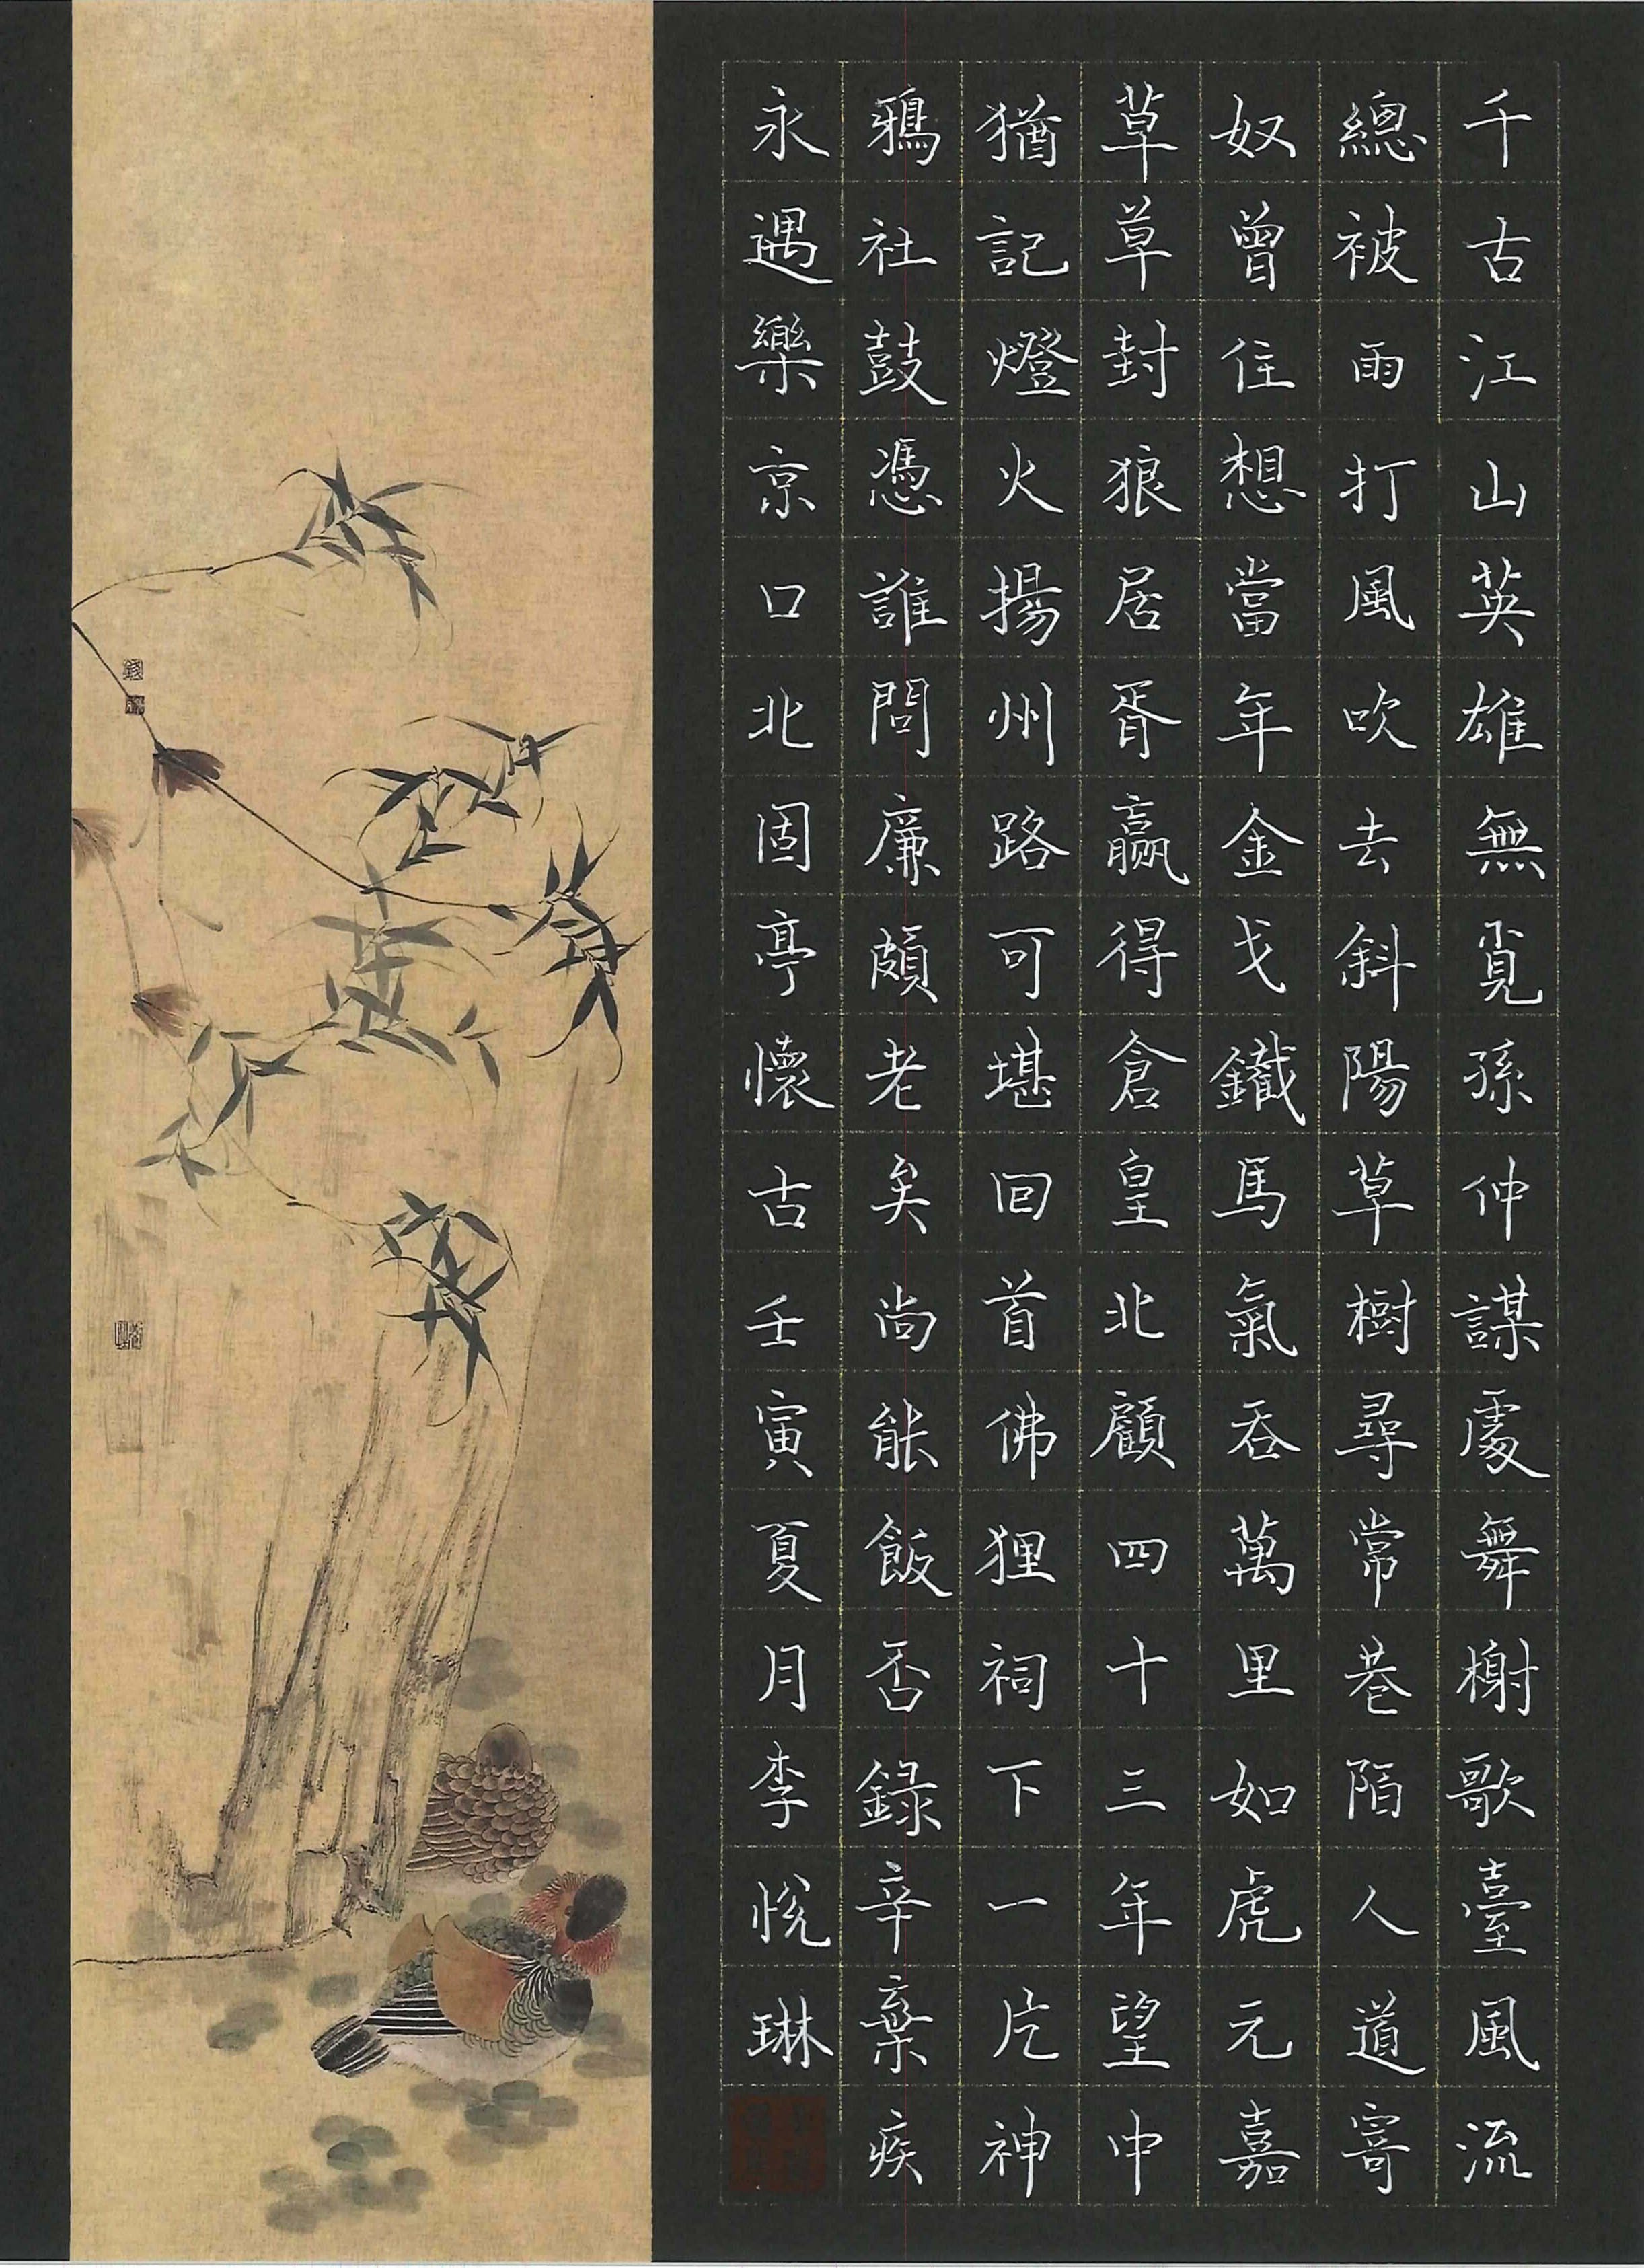 千古江山英雄無覓孫仲謀處舞榭歌臺風流
總被雨打風吹去斜陽草樹尋常巷陌人道寄
奴曾住想當年金戈鐵馬氣吞萬里如虎元嘉
草草封狼居胥贏得倉皇北顧四十三年望中
猶記燈火揚州路可堪回首佛狸祠下一片神
鴉社鼓憑誰問廉頗老矣尚能飯否錄辛棄疾
永遇樂京口北固亭懷古壬寅夏月李悅琳